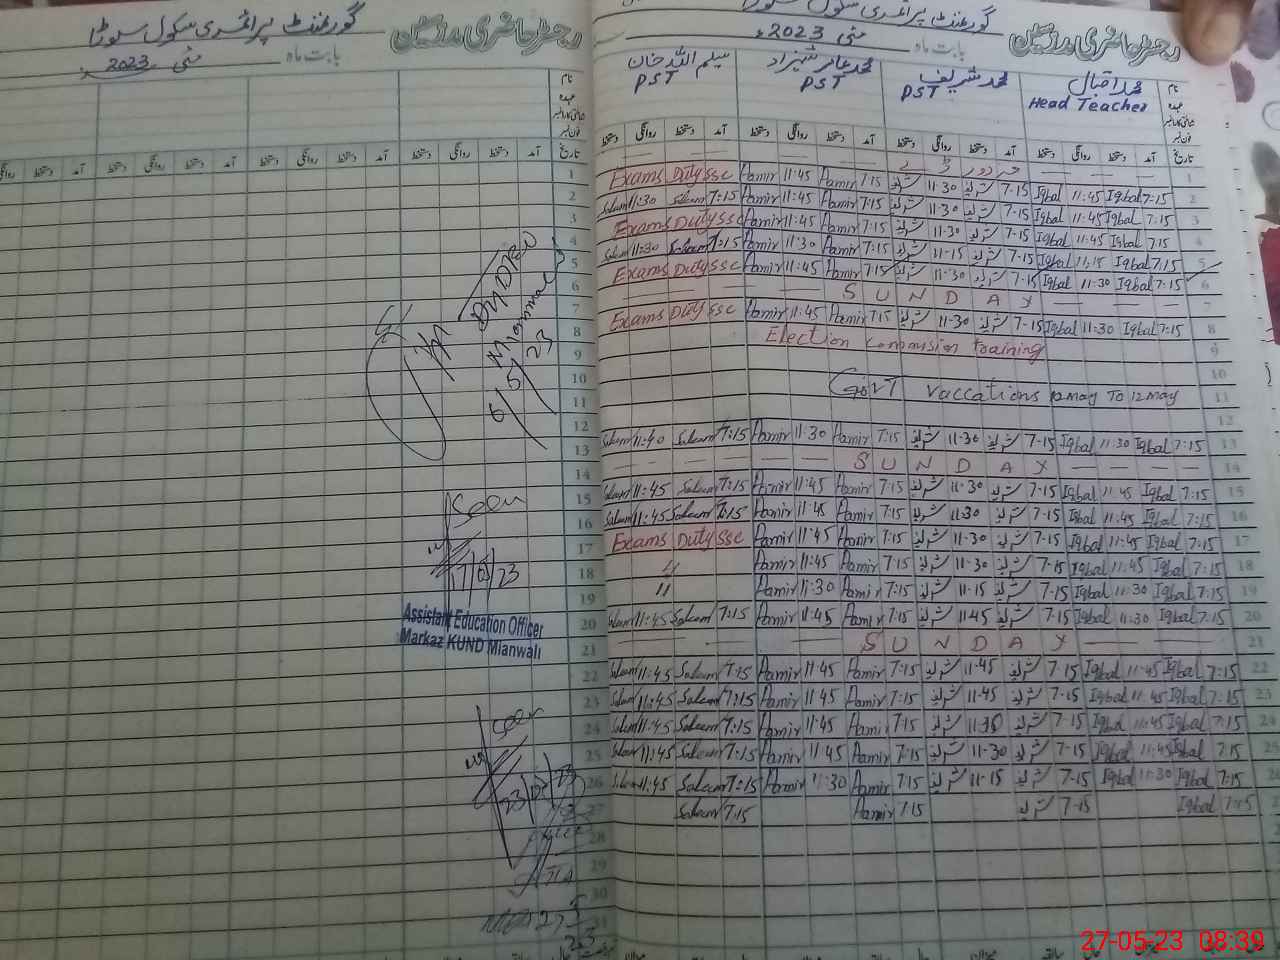 رجسٹر حاضری مدرسین
گورنمنٹ پرائمری سکول
بابت ماہ مئی 2023ء
رجسٹر حاضری مدرسین
گورنمنٹ پرائمری سکول
بابت ماہ مئی 2023ء
نام محمد اقبال محمد شریف محمد عامر شہزاد سلیم اللہ خان
عہدہ Head Teacher PST PST PST
تاریخ آمد دستخط روانگی دستخط آمد دستخط روانگی دستخط آمد دستخط روانگی دستخط آمد دستخط روانگی دستخط
1 مزدور ڈے
Exams Duty SSC Aamir 11:45 Aamir 7:15 شریف 11-30 شریف 7-15 Iqbal 11:45 Iqbal 7:15 2
Saleem 11:30 Saleem 7:15 Aamir 11:45 Aamir 7:15 شریف 11-30 شریف 7-15 Iqbal 11:45 Iqbal 7:15 3
Exams Duty SSC Aamir 11:45 Aamir 7:15 شریف 11-30 شریف 7-15 Iqbal 11:45 Iqbal 7:15 4
Saleem 11:30 Saleem 7:15 Aamir 11:30 Aamir 7:15 شریف 11-15 شریف 7-15 Iqbal 11:15 Iqbal 7:15 5
Exams Duty SSC Aamir 11:45 Aamir 7:15 شریف 11-30 شریف 7-15 Iqbal 11:30 Iqbal 7:15 6
SUNDAY 7
Exams Duty SSC Aamir 11:45 Aamir 7:15 شریف 11-30 شریف 7-15 Iqbal 11:30 Iqbal 7:15 8
Election Commision training 9
10
Govt vaccations 10 may To 12 may 11
12
Saleem 11:40 Saleem 7:15 Aamir 11:30 Aamir 7:15 شریف 11-30 شریف 7-15 Iqbal 11:30 Iqbal 7:15 13
SUNDAY 14
Saleem 11:45 Saleem 7:15 Aamir 11:45 Aamir 7:15 شریف 11-30 شریف 7-15 Iqbal 11:45 Iqbal 7:15 15
Saleem 11:45 Saleem 7:15 Aamir 11:45 Aamir 7:15 شریف 11-30 شریف 7-15 Iqbal 11:45 Iqbal 7:15 16
Exams Duty SSC Aamir 11:45 Aamir 7:15 شریف 11-30 شریف 7-15 Iqbal 11:45 Iqbal 7:15 17
〃 Aamir 11:45 Aamir 7:15 شریف 11-30 شریف 7-15 Iqbal 11:45 Iqbal 7:15 18
〃 Aamir 11:30 Aamir 7:15 شریف 11-15 شریف 7-15 Iqbal 11:30 Iqbal 7:15 19
Saleem 11:45 Saleem 7:15 Aamir 11:45 Aamir 7:15 شریف 11-45 شریف 7-15 Iqbal 11:30 Iqbal 7:15 20
SUNDAY 21
Saleem 11:45 Saleem 7:15 Aamir 11:45 Aamir 7:15 شریف 11-45 شریف 7-15 Iqbal 11:45 Iqbal 7:15 22
Saleem 11:45 Saleem 7:15 Aamir 11:45 Aamir 7:15 شریف 11-45 شریف 7-15 Iqbal 11:45 Iqbal 7:15 23
Saleem 11:45 Saleem 7:15 Aamir 11:45 Aamir 7:15 شریف شریف 7-15 Iqbal 11:45 Iqbal 7:15 24
Saleem 11:45 Saleem 7:15 Aamir 11:45 Aamir 7:15 شریف 11-30 شریف 7-15 Iqbal 11:45 Iqbal 7:15 25
Saleem 11:45 Saleem 7:15 Aamir 11:30 Aamir 7:15 شریف 11-15 شریف 7-15 Iqbal 11:30 Iqbal 7:15 26
Saleem 7:15 Aamir 7:15 شریف 7-15 Iqbal 7:15
6/5/23
Seen
17/05/23
Assistant Education Officer
Markaz KUND Mianwali
Seen
23/05/23
27-05-23 08:39